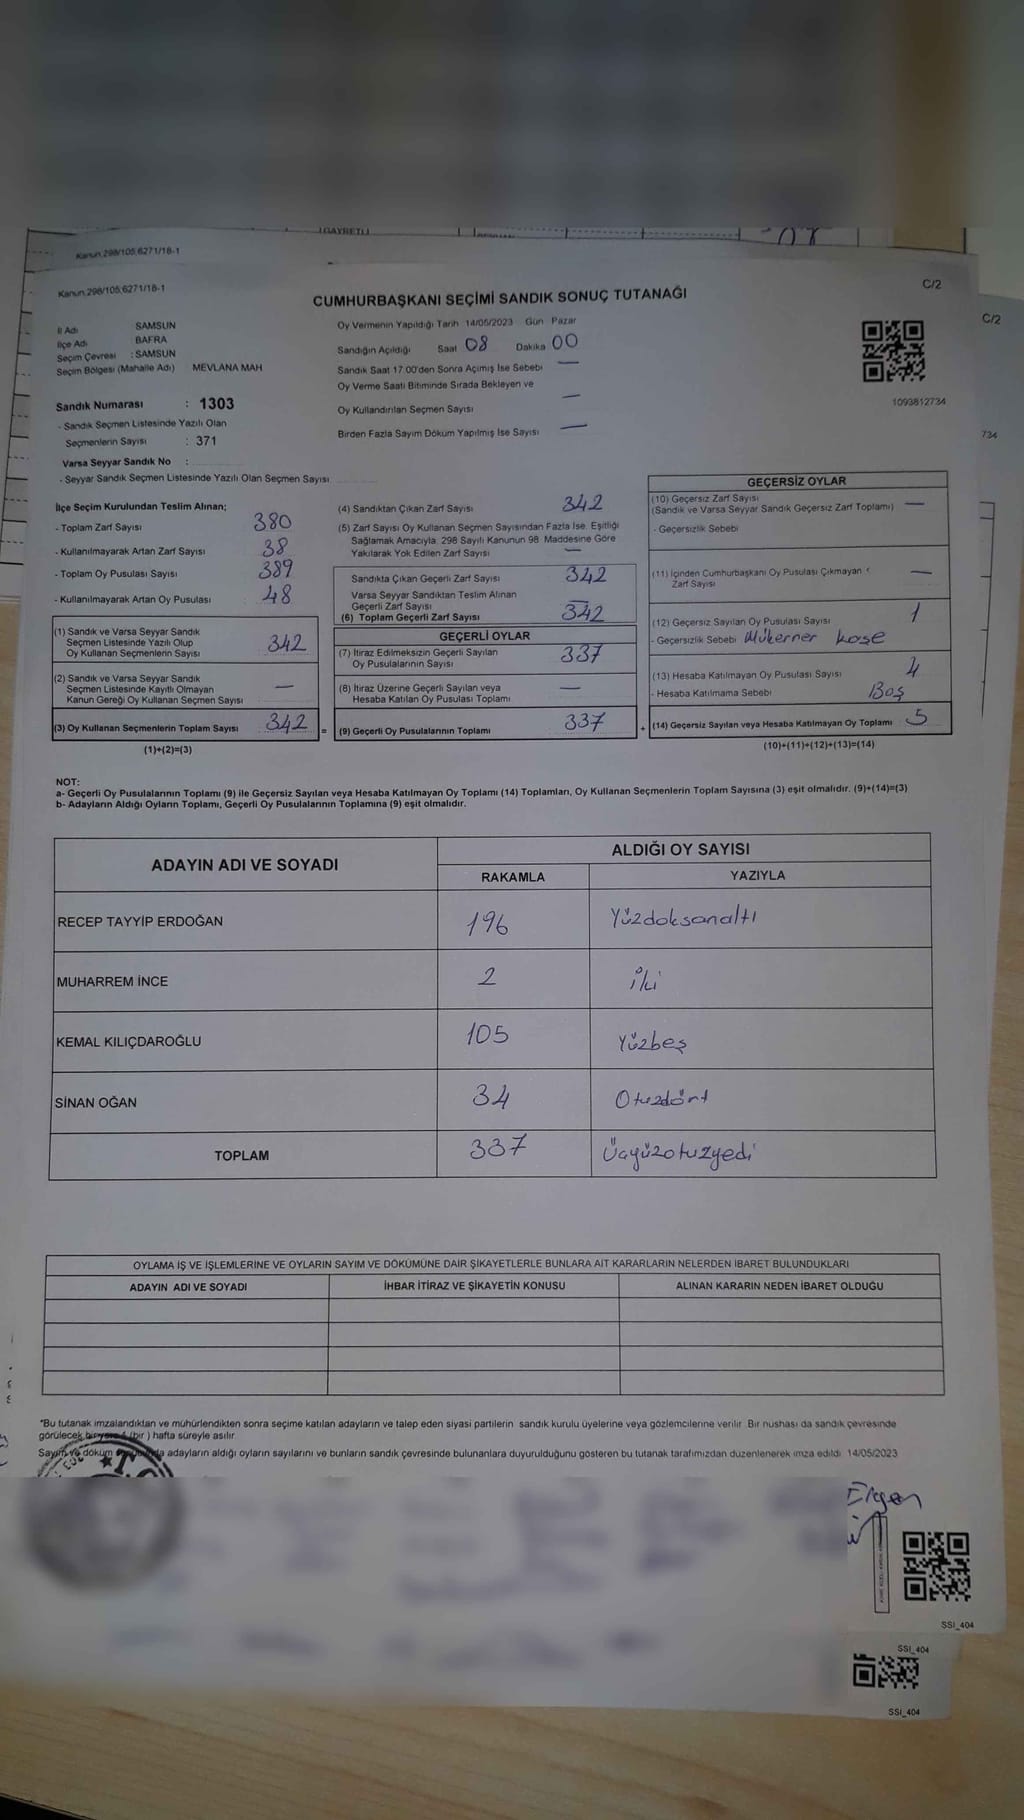 GAYRETLİ
Kanun,298/105;6271/18-1
Kanun,298/105;6271/18-1
C/2
C/2
CUMHURBAŞKANI SEÇİMİ SANDIK SONUÇ TUTANAĞI
İl Adı SAMSUN
İlçe Adı BAFRA
Seçim Çevresi : SAMSUN
Seçim Bölgesi (Mahalle Adı) MEVLANA MAH
Sandık Numarası : 1303
- Sandık Seçmen Listesinde Yazılı Olan
Seçmenlerin Sayısı : 371
Varsa Seyyar Sandık No :
- Seyyar Sandık Seçmen Listesinde Yazılı Olan Seçmen Sayısı
Oy Vermenin Yapıldığı Tarih 14/05/2023 Gün Pazar
Sandığın Açıldığı Saat 08 Dakika 00
Sandık Saat 17.00'den Sonra Açımış İse Sebebi —
Oy Verme Saati Bitiminde Sırada Bekleyen ve
Oy Kullandırılan Seçmen Sayısı —
Birden Fazla Sayım Döküm Yapılmış İse Sayısı —
1093812734
734
İlçe Seçim Kurulundan Teslim Alınan;
- Toplam Zarf Sayısı 380
- Kullanılmayarak Artan Zarf Sayısı 38
- Toplam Oy Pusulası Sayısı 389
- Kullanılmayarak Artan Oy Pusulası 48
(1) Sandık ve Varsa Seyyar Sandık
Seçmen Listesinde Yazılı Olup
Oy Kullanan Seçmenlerin Sayısı 342
(2) Sandık ve Varsa Seyyar Sandık
Seçmen Listesinde Kayıtlı Olmayan
Kanun Gereği Oy Kullanan Seçmen Sayısı —
(3) Oy Kullanan Seçmenlerin Toplam Sayısı 342
(1)+(2)=(3)
(4) Sandıktan Çıkan Zarf Sayısı 342
(5) Zarf Sayısı Oy Kullanan Seçmen Sayısından Fazla İse, Eşitliği
Sağlamak Amacıyla, 298 Sayılı Kanunun 98. Maddesine Göre
Yakılarak Yok Edilen Zarf Sayısı —
Sandıkta Çıkan Geçerli Zarf Sayısı 342
Varsa Seyyar Sandıktan Teslim Alınan
Geçerli Zarf Sayısı —
(6) Toplam Geçerli Zarf Sayısı 342
GEÇERLİ OYLAR
(7) İtiraz Edilmeksizin Geçerli Sayılan
Oy Pusulalarının Sayısı 337
(8) İtiraz Üzerine Geçerli Sayılan veya
Hesaba Katılan Oy Pusulası Toplamı —
= (9) Geçerli Oy Pusulalarının Toplamı 337
GEÇERSİZ OYLAR
(10) Geçersiz Zarf Sayısı
(Sandık ve Varsa Seyyar Sandık Geçersiz Zarf Toplamı) —
- Geçersizlik Sebebi
(11) İçinden Cumhurbaşkanı Oy Pusulası Çıkmayan
Zarf Sayısı —
(12) Geçersiz Sayılan Oy Pusulası Sayısı 1
- Geçersizlik Sebebi Mükerner kaşe
(13) Hesaba Katılmayan Oy Pusulası Sayısı 4
- Hesaba Katılmama Sebebi Boş
+ (14) Geçersiz Sayılan veya Hesaba Katılmayan Oy Toplamı 5
(10)+(11)+(12)+(13)=(14)
NOT:
a- Geçerli Oy Pusulalarının Toplamı (9) ile Geçersiz Sayılan veya Hesaba Katılmayan Oy Toplamı (14) Toplamları, Oy Kullanan Seçmenlerin Toplam Sayısına (3) eşit olmalıdır. (9)+(14)=(3)
b- Adayların Aldığı Oyların Toplamı, Geçerli Oy Pusulalarının Toplamına (9) eşit olmalıdır.
ADAYIN ADI VE SOYADI ALDIĞI OY SAYISI
RAKAMLA YAZIYLA
RECEP TAYYİP ERDOĞAN 196 Yüzdoksanaltı
MUHARREM İNCE 2 İki
KEMAL KILIÇDAROĞLU 105 Yüzbeş
SİNAN OĞAN 34 Otuzdört
TOPLAM 337 Üçyüzotuzyedi
OYLAMA İŞ VE İŞLEMLERİNE VE OYLARIN SAYIM VE DÖKÜMÜNE DAİR ŞİKAYETLERLE BUNLARA AİT KARARLARIN NELERDEN İBARET BULUNDUKLARI
ADAYIN ADI VE SOYADI İHBAR İTİRAZ VE ŞİKAYETİN KONUSU ALINAN KARARIN NEDEN İBARET OLDUĞU
*Bu tutanak imzalandıktan ve mühürlendikten sonra seçime katılan adayların ve talep eden siyasi partilerin sandık kurulu üyelerine veya gözlemcilerine verilir. Bir nüshası da sandık çevresinde
görülecek bir yere 1 (bir ) hafta süreyle asılır.
Sayım ve döküm adayların aldığı oyların sayılarını ve bunların sandık çevresinde bulunanlara duyurulduğunu gösteren bu tutanak tarafımızdan düzenlenerek imza edildi. 14/05/2023
T.C.
Ergen
SSI_404
SSI_404
SSI_404